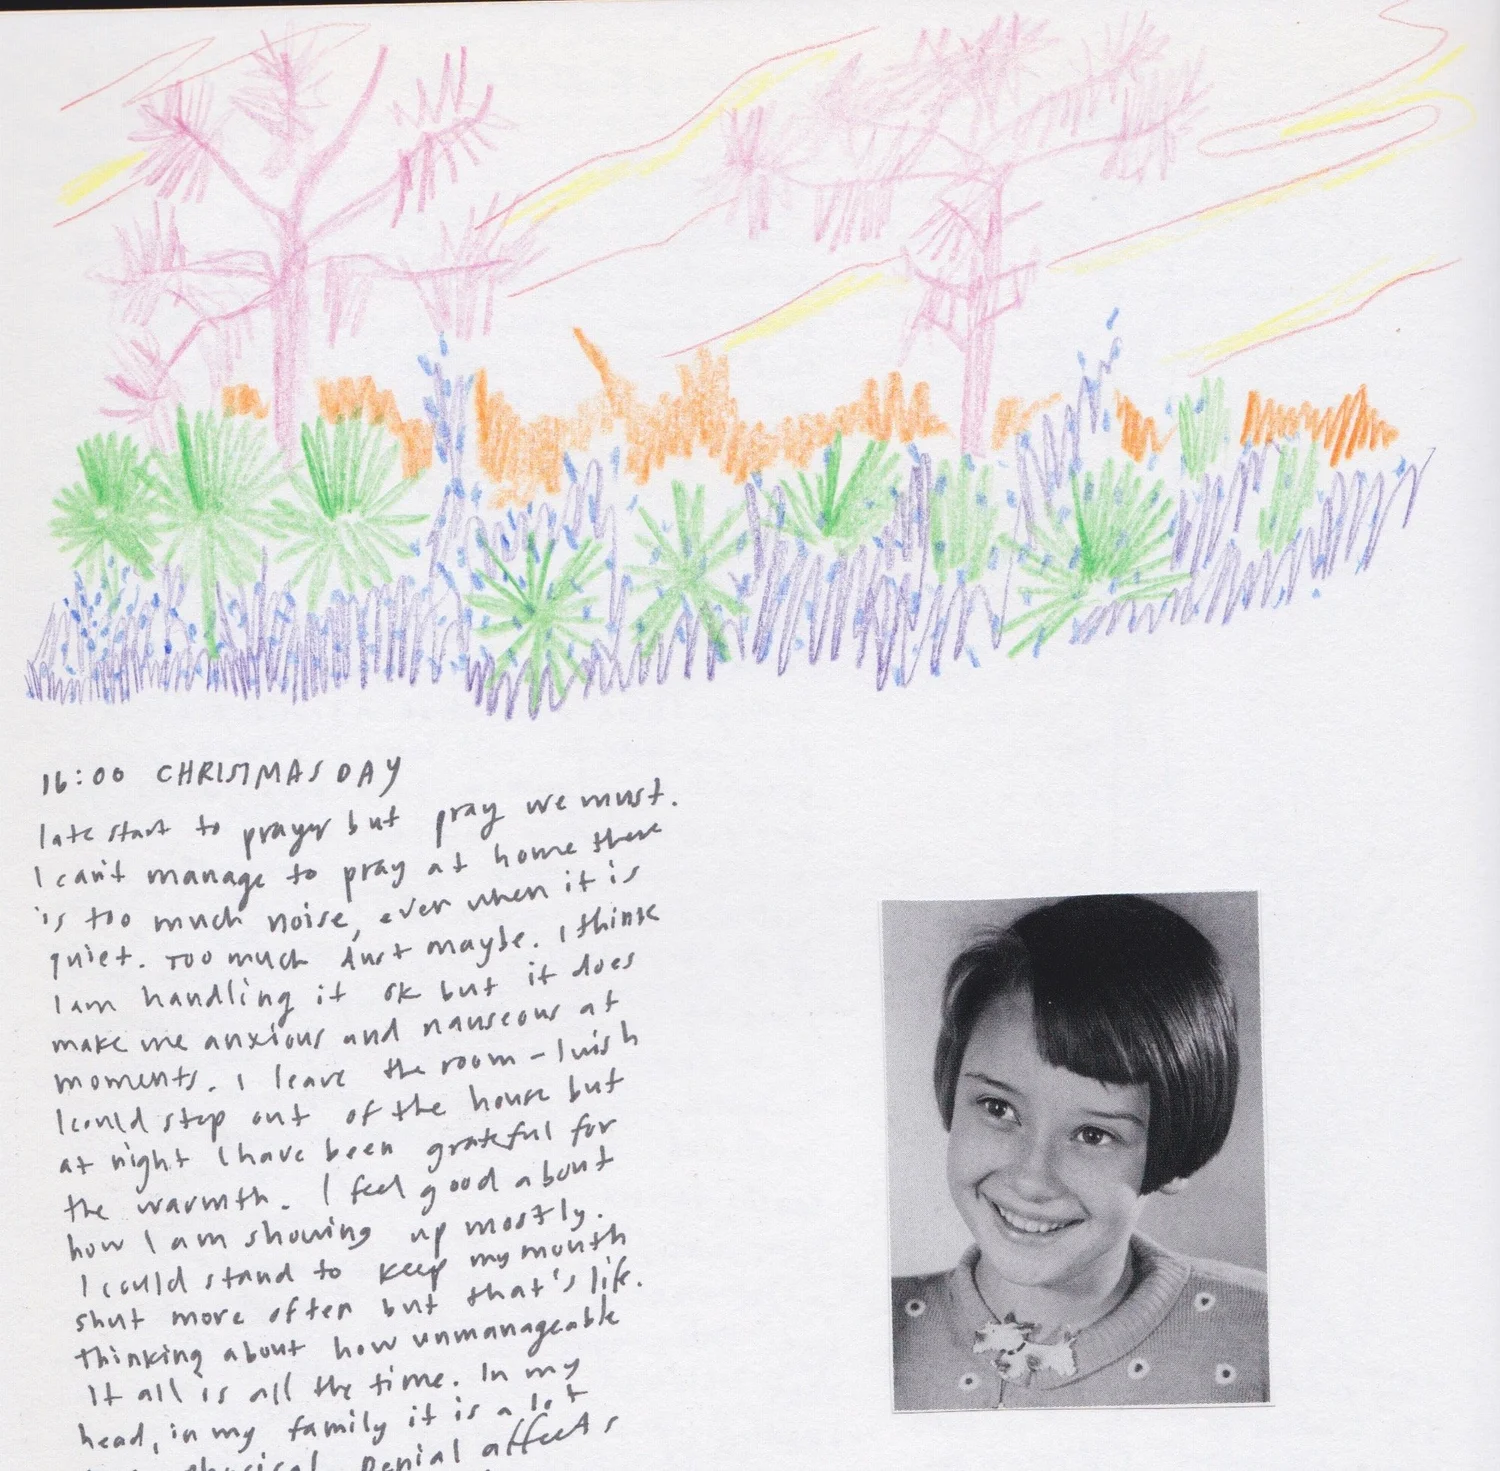 16:00 CHRISTMAS DAY
late start to prayer but pray we must.
I can't manage to pray at home there
is too much noise, even when it is
quiet. Too much dust maybe. I think
I am handling it ok but it does
make me anxious and nauseous at
moments. I leave the room - I wish
I could step out of the house but
at night I have been grateful for
the warmth. I feel good about
how I am showing up mostly.
I could stand to keep my mouth
shut more often but that's life.
thinking about how unmanageable
It all is all the time. In my
head, in my family it is a lot
physical. Denial affects